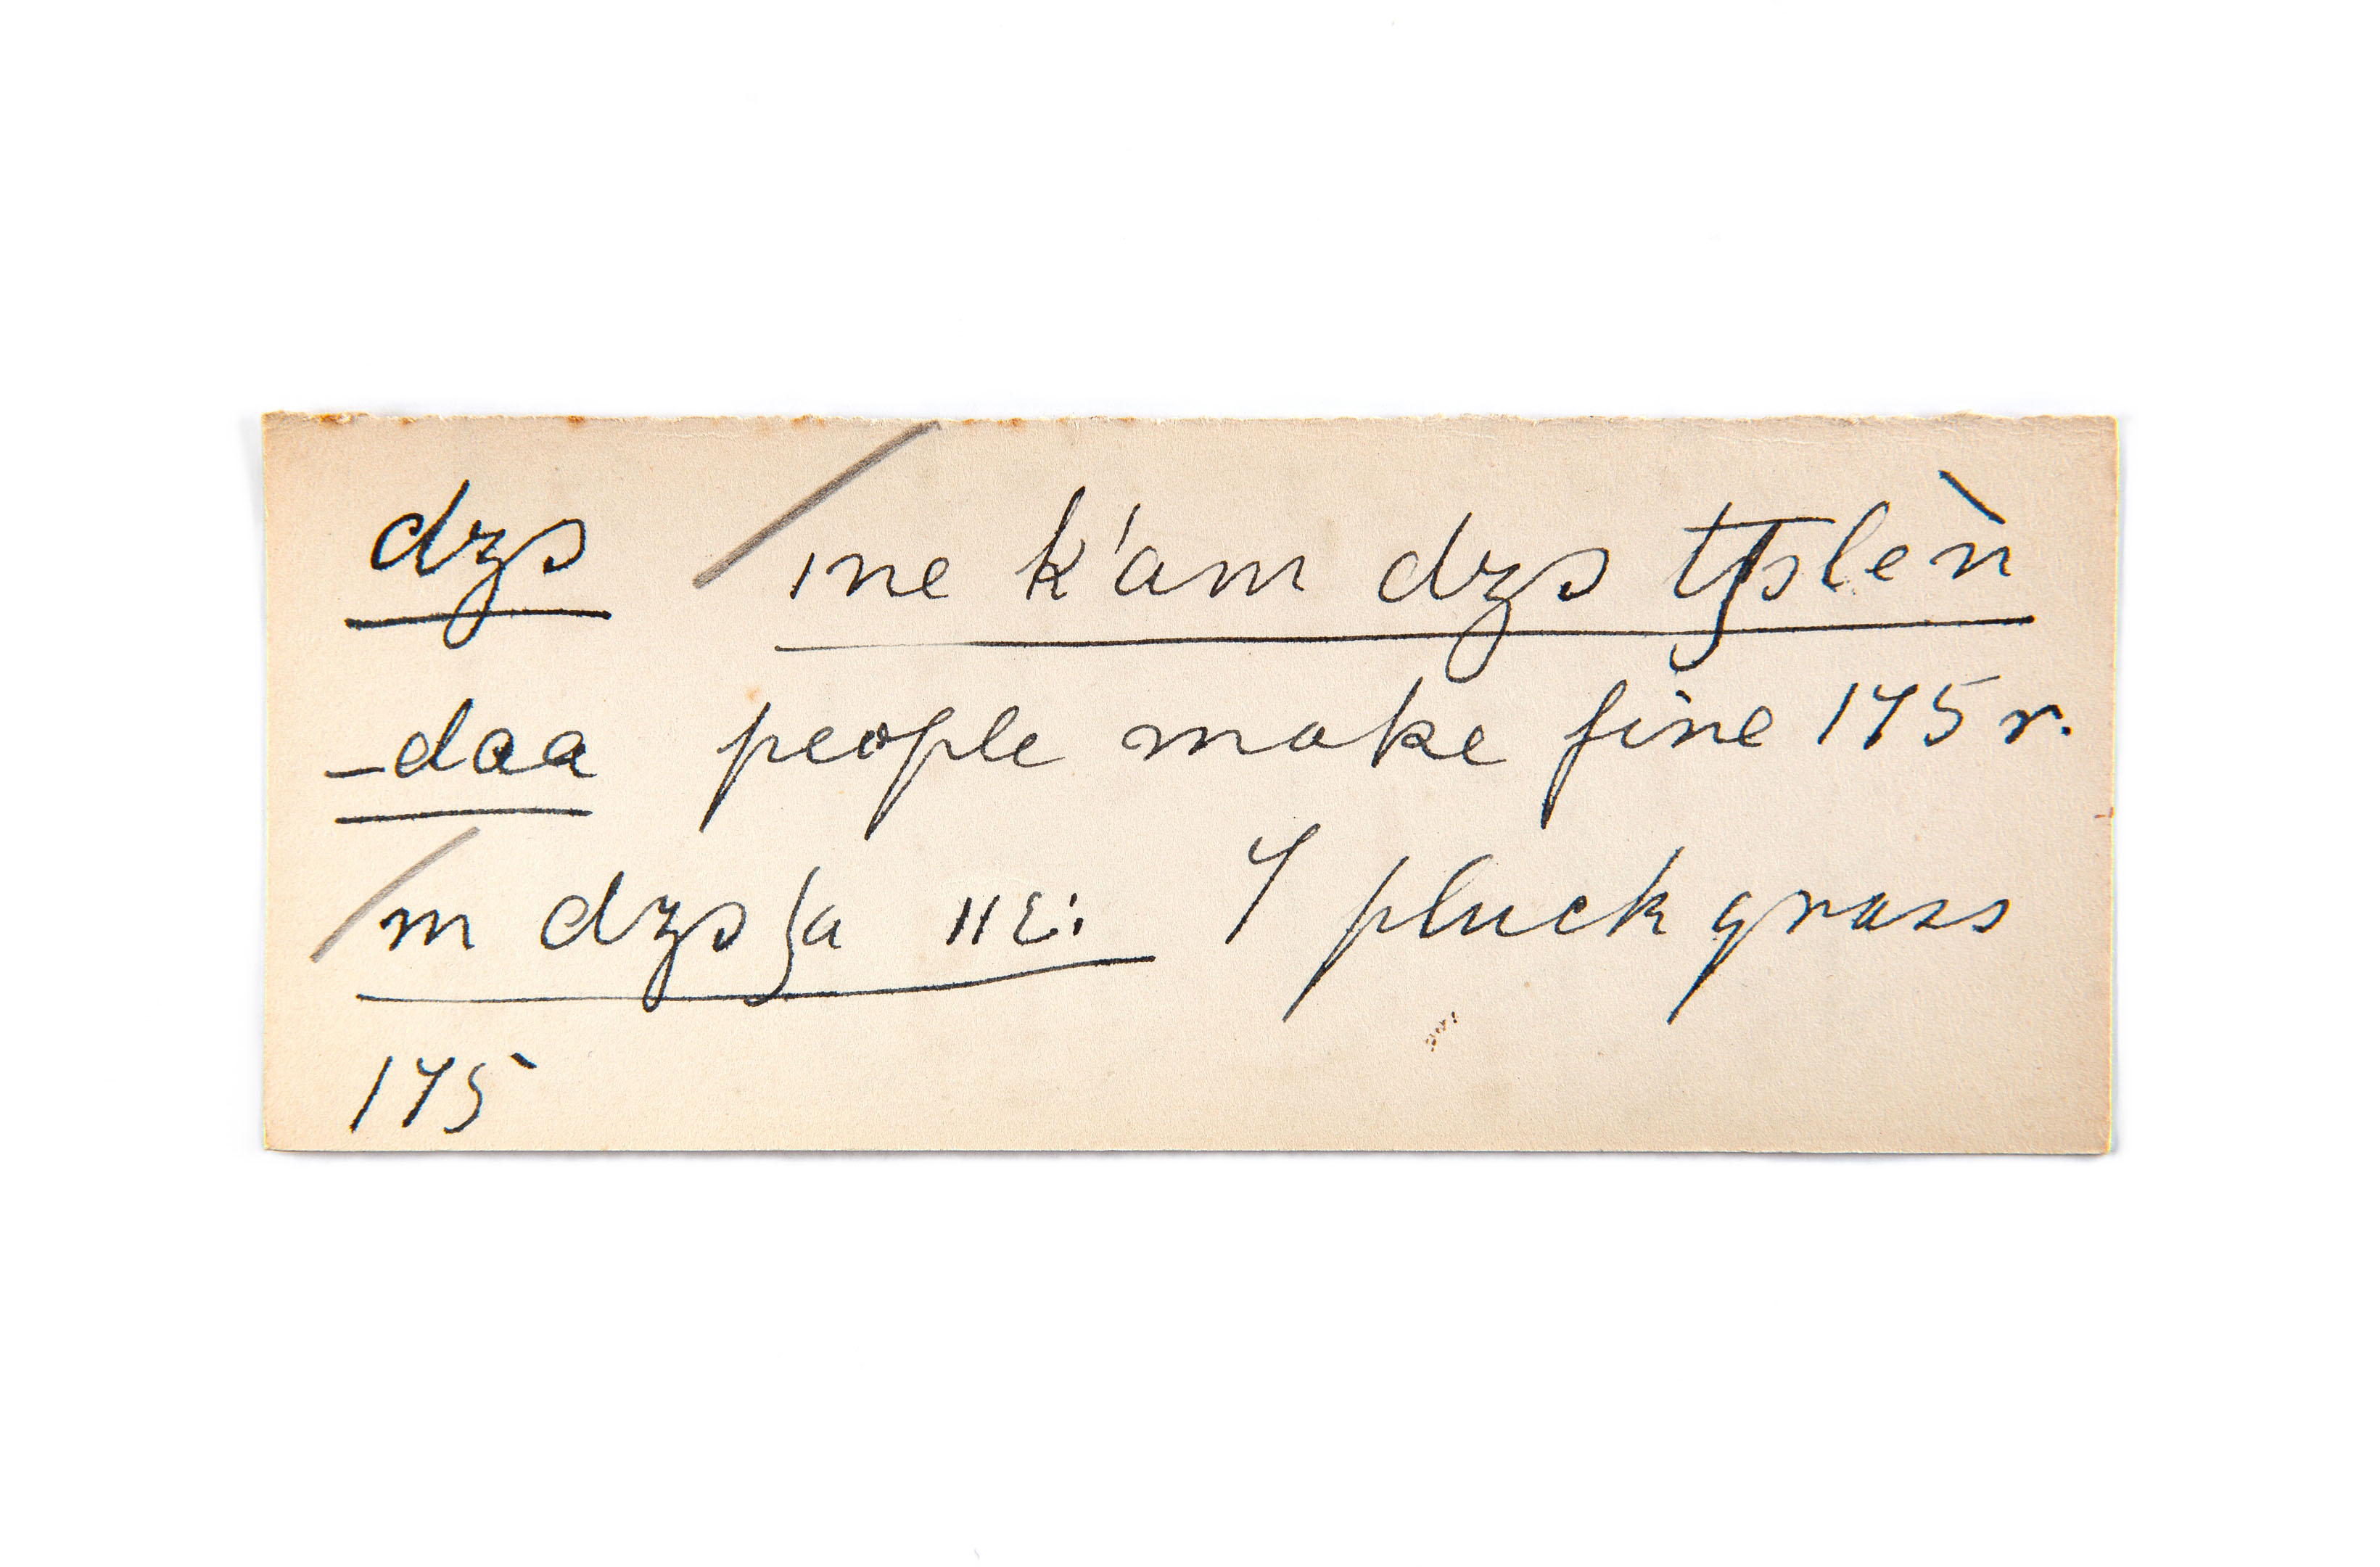 dzs ine k'am dzs tʃslen̄̀
-daa people make fine 175 r.
m dzsʃa nɛi I pluck grass
175